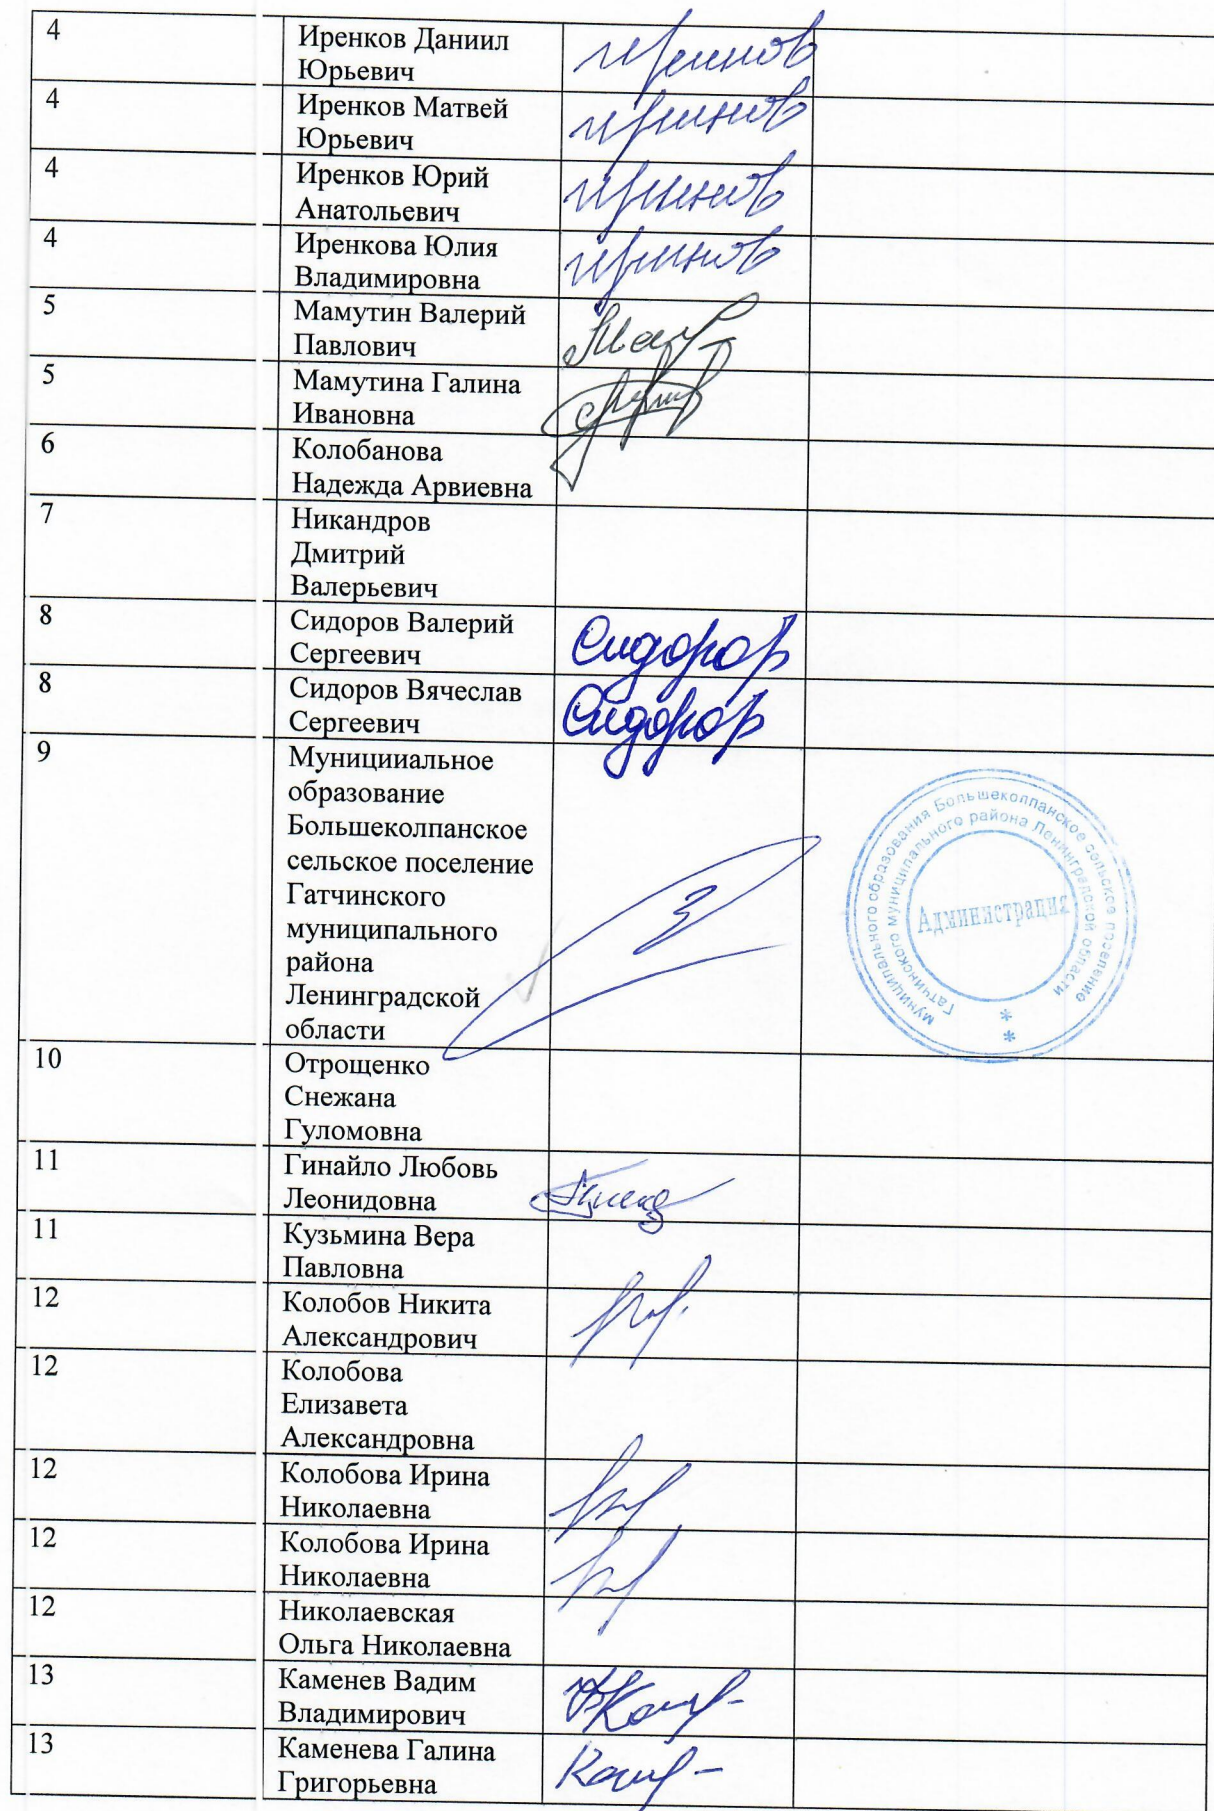 4
Иренков Даниил
Юрьевич
4
Иренков Матвей
Юрьевич
4
Иренков Юрий
Анатольевич
4
Иренкова Юлия
Владимировна
5
Мамутин Валерий
Павлович
5
Мамутина Галина
Ивановна
6
Колобанова
Надежда Арвиевна
7
Никандров
Дмитрий
Валерьевич
8
Сидоров Валерий
Сергеевич
Сидоров
8
Сидоров Вячеслав
Сергеевич
Сидоров
9
Муницииальное
образование
Большеколпанское
сельское поселение
Гатчинского
муниципального
района
Ленинградской
области
муниципального образования Большеколпанское сельское поселение
Гатчинского муниципального района Ленинградской области
Администрация
10
Отрощенко
Снежана
Гуломовна
11
Гинайло Любовь
Леонидовна
11
Кузьмина Вера
Павловна
12
Колобов Никита
Александрович
12
Колобова
Елизавета
Александровна
12
Колобова Ирина
Николаевна
12
Колобова Ирина
Николаевна
12
Николаевская
Ольга Николаевна
13
Каменев Вадим
Владимирович
13
Каменева Галина
Григорьевна